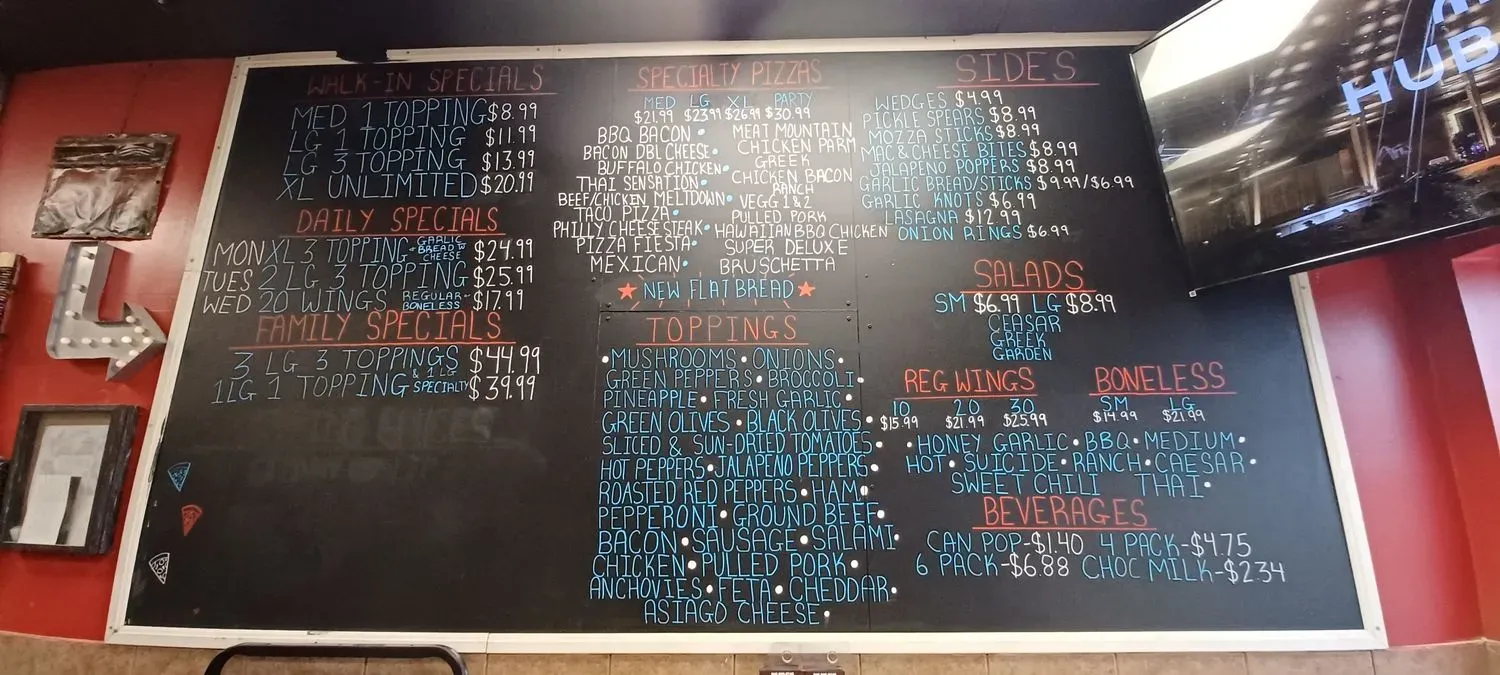 WALK-IN SPECIALS
MED 1 TOPPING $8.99
LG 1 TOPPING $11.99
LG 3 TOPPING $13.99
XL UNLIMITED $20.99
DAILY SPECIALS
MON XL 3 TOPPING + GARLIC BREAD W CHEESE $24.99
TUES 2 LG 3 TOPPING $25.99
WED 20 WINGS REGULAR- BONELESS $17.99
FAMILY SPECIALS
3 LG 3 TOPPINGS $44.99
1 LG 1 TOPPING & 1 LG SPECIALTY $39.99
SPECIALTY PIZZAS
MED LG XL PARTY
$21.99 $23.99 $26.99 $30.99
BBQ BACON • MEAT MOUNTAIN
BACON DBL CHEESE • CHICKEN PARM
BUFFALO CHICKEN • GREEK
THAI SENSATION • CHICKEN BACON RANCH
BEEF/CHICKEN MELTDOWN • VEGG 1 & 2
TACO PIZZA • PULLED PORK
PHILLY CHEESESTEAK • HAWAIIAN BBQ CHICKEN
PIZZA FIESTA • SUPER DELUXE
MEXICAN • BRUSCHETTA
★ NEW FLATBREAD ★
TOPPINGS
• MUSHROOMS • ONIONS •
GREEN PEPPERS • BROCCOLI •
PINEAPPLE • FRESH GARLIC •
GREEN OLIVES • BLACK OLIVES •
SLICED & SUN-DRIED TOMATOES •
HOT PEPPERS • JALAPENO PEPPERS •
ROASTED RED PEPPERS • HAM •
PEPPERONI • GROUND BEEF •
BACON • SAUSAGE • SALAMI •
CHICKEN • PULLED PORK •
ANCHOVIES • FETA • CHEDDAR •
ASIAGO CHEESE •
SIDES
WEDGES $4.99
PICKLE SPEARS $8.99
MOZZA STICKS $8.99
MAC & CHEESE BITES $8.99
JALAPENO POPPERS $8.99
GARLIC BREAD/STICKS $9.99/$6.99
GARLIC KNOTS $6.99
LASAGNA $12.99
ONION RINGS $6.99
SALADS
SM $6.99 LG $8.99
CEASAR
GREEK
GARDEN
REG WINGS
10 20 30
$15.99 $21.99 $25.99
BONELESS
SM LG
$14.99 $21.99
• HONEY GARLIC • BBQ • MEDIUM •
HOT • SUICIDE • RANCH • CAESAR •
SWEET CHILI THAI •
BEVERAGES
CAN POP - $1.40 4 PACK - $4.75
6 PACK - $6.88 CHOC MILK - $2.34
HUB